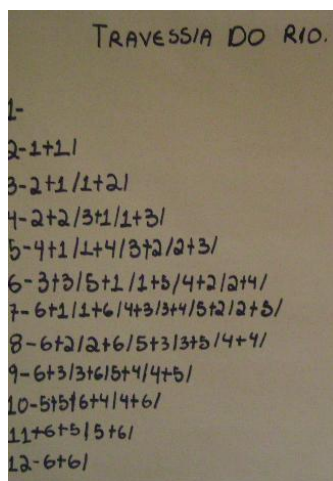 TRAVESSIA DO RIO.
1-
2-1+1/
3-2+1/1+2/
4-2+2/3+1/1+3/
5-4+1/1+4/3+2/2+3/
6-3+3/5+1/1+5/4+2/2+4/
7-6+1/1+6/4+3/3+4/5+2/2+5/
8-6+2/2+6/5+3/3+5/4+4/
9-6+3/3+6/5+4/4+5/
10-5+5/6+4/4+6/
11+6+5/5+6/
12-6+6/